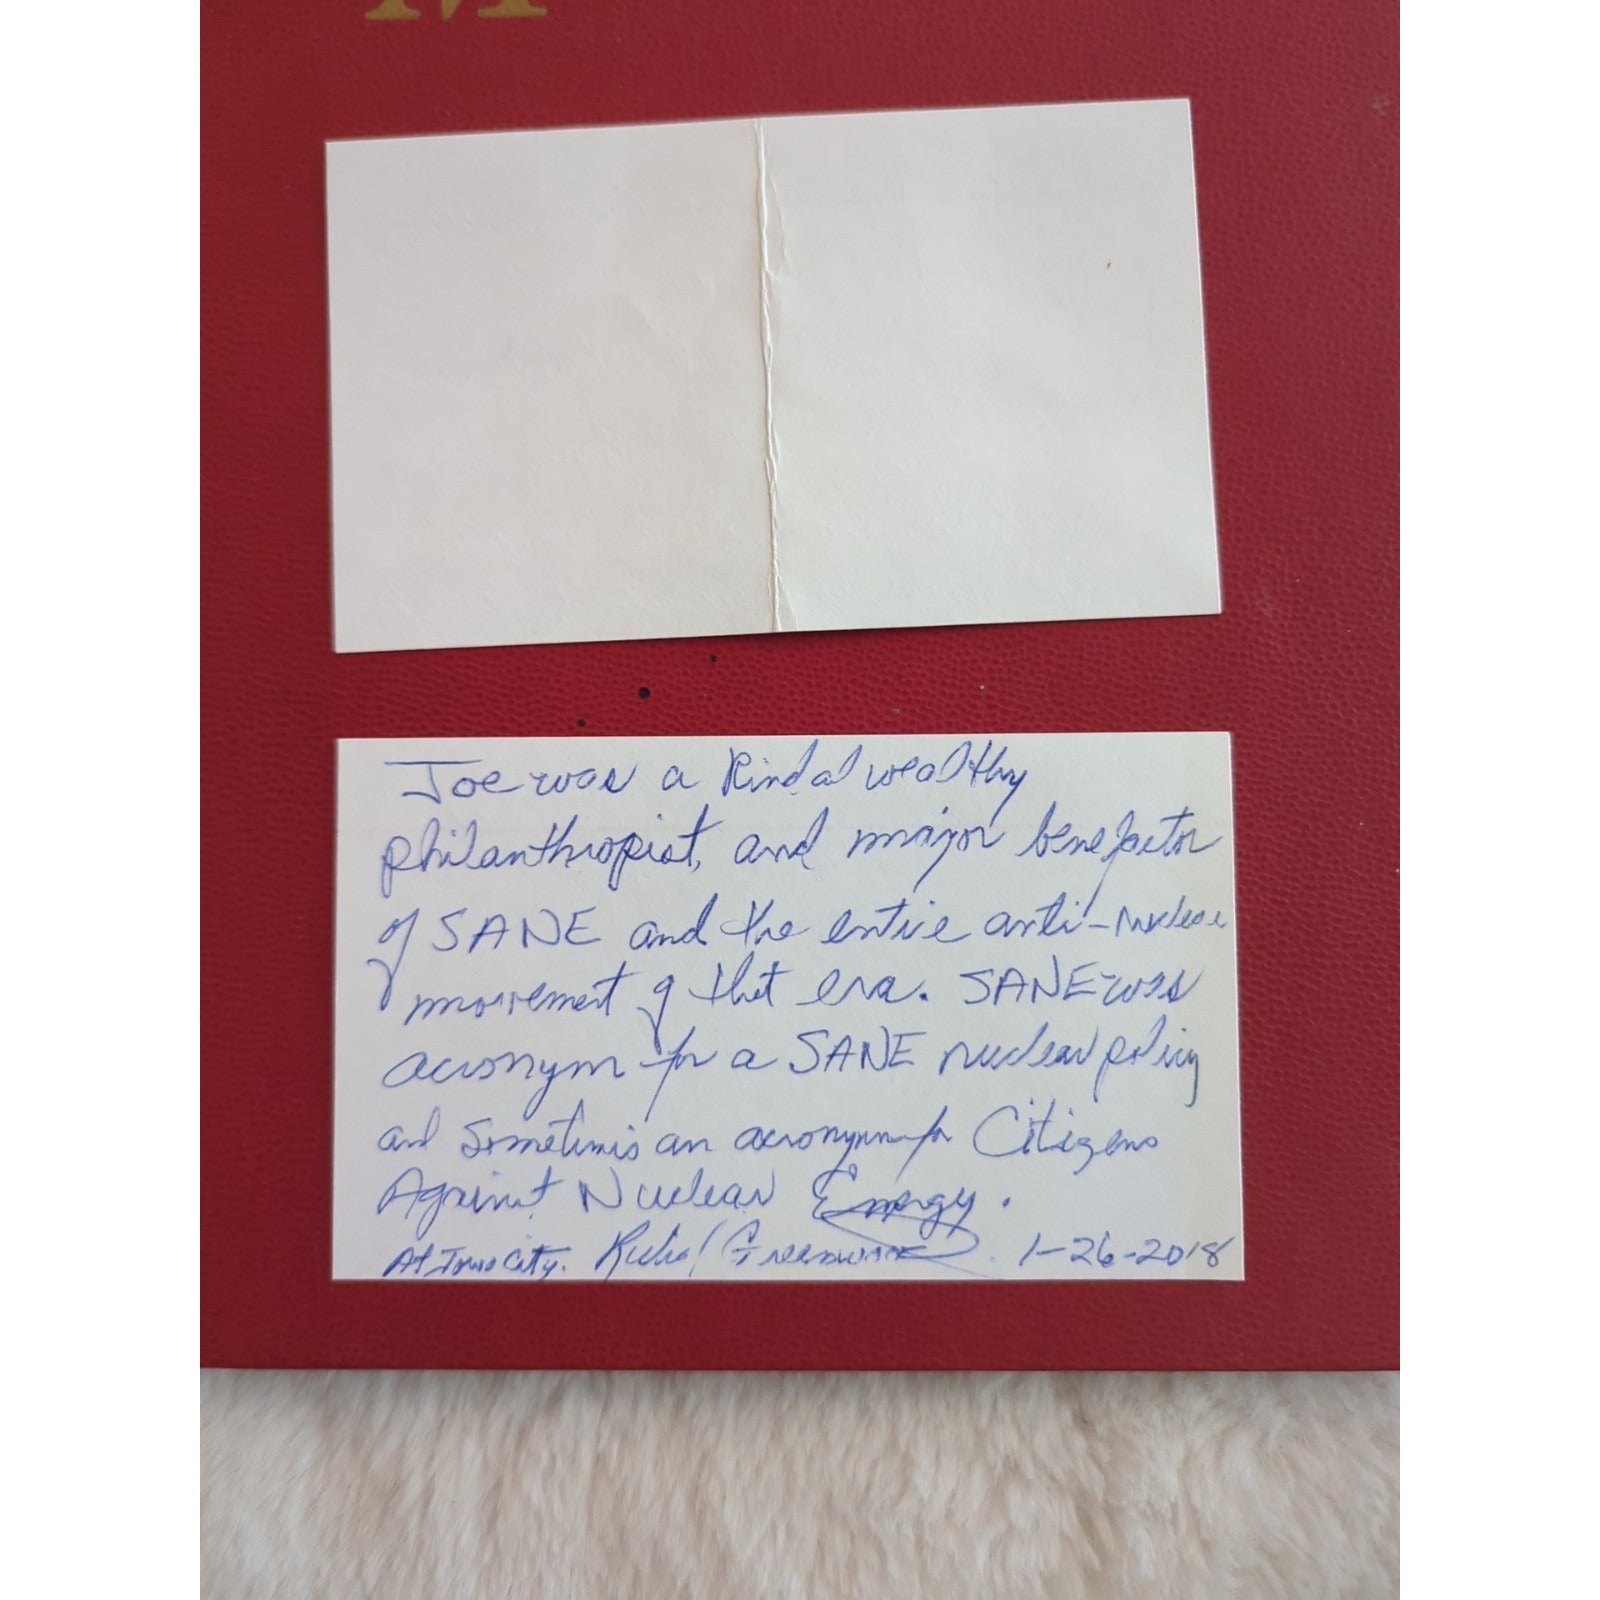 Joe was a kind al wealthy
philanthropist, and major benefactor
of SANE and the entire anti-nuclear
movement of that era. SANE was
acronym for a SANE nuclear policy
and sometimes an acronym for Citizens
Against Nuclear Energy.
At Iowa City. Richal 1-26-2018